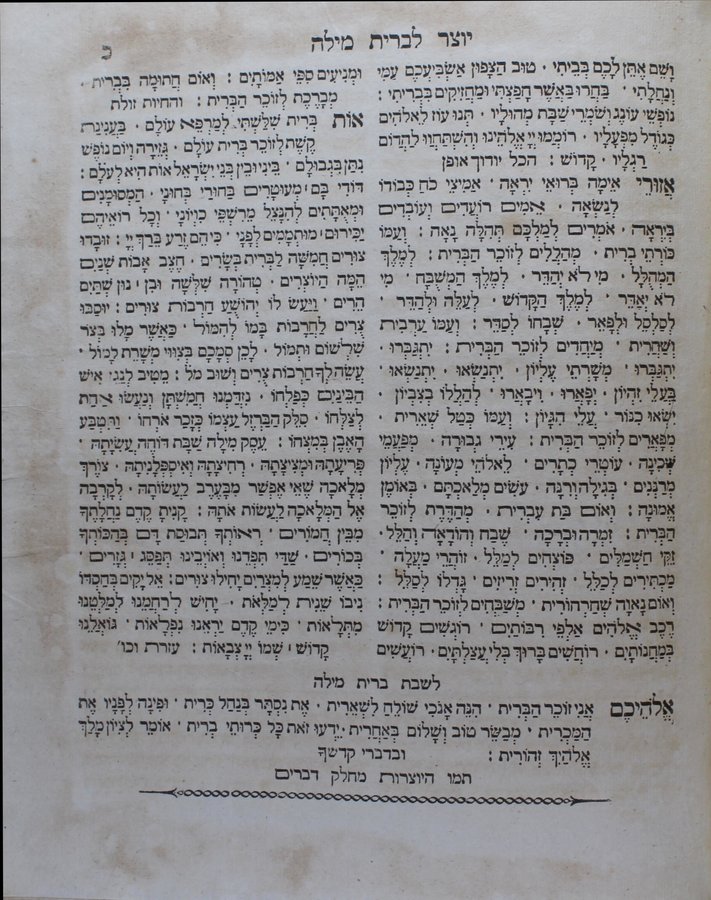 יוצר לברית מילה
כ
וָשֵׁם אֶתֵּן לָכֶם בְּבֵיתִי · טוּב הַצָּפוּן אַשְׂבִּיעֲכֶם עַמִּי
וְנַחֲלָתִי · בַּחֲרוּ בַּאֲשֶׁר חָפַצְתִּי וּמַחֲזִיקִים בִּבְרִיתִי :
נוֹפְשֵׁי עוֹנֶג וְשׁוֹמְרֵי שַׁבָּת מֵהוּלָיו · תְּנוּ עוֹז לֵאלֹהִים
כְּגוֹדֶל מִפְעָלָיו · רוֹמְמוּ יְיָ אֱלֹהֵינוּ וְהִשְׁתַּחֲווּ לַהֲדוֹם
רַגְלָיו · קָדוֹשׁ : הכל יודוך אופן
אֲזוּרֵי אֵימָה בְּרוּאֵי יִרְאָה · אַמִּיצֵי כֹחַ כְּבוֹדוֹ
לְנַשְּׂאָה · אֵמִים רוֹעֲדִים וְעוֹבְדִים
בְּיִרְאָה · אֹמְרִים לְמַלְכָּם תְּהִלָּה נָאָה : וְעַמּוֹ
כּוֹרְתֵי בְרִית · מְהַלְלִים לְזוֹכֵר הַבְּרִית : לְמֶלֶךְ
הַמְהֻלָּל · מִי לֹא יְהַדֵּר · לְמֶלֶךְ הַמְשֻׁבָּח · מִי
לֹא יְאַדֵּר · לְמֶלֶךְ הַקָּדוֹשׁ · לְעַלֵּה וּלְהַדֵּר ·
לְסַלְסֵל וּלְפָאֵר · שִׁבְחוֹ לְסַדֵּר : וְעַמּוֹ עַרְבִית
וְשַׁחֲרִית · מְיַחֲדִים לְזוֹכֵר הַבְּרִית : יִתְגַּבְּרוּ ·
יִתְגַּבְּרוּ · מְשָׁרְתֵי עֶלְיוֹן · יִתְנַשְּׂאוּ · יִתְנַשְּׂאוּ ·
בַּעֲלֵי זִהְיוֹן · יְפָאֲרוּ · וִיבָאֲרוּ · לְהַלְלוֹ בְּצִבְיוֹן ·
יִשְׂאוּ כִנּוֹר · עֲלֵי הִגָּיוֹן : וְעַמּוֹ כְּטַל שְׁאֵרִית ·
מְפָאֲרִים לְזוֹכֵר הַבְּרִית : עִירֵי גְבוּרָה · מִפַּעֲמֵי
שְׁכִינָה · עוֹטְרֵי כְתָרִים · לֵאלֹהֵי מְעוֹנָה · עֶלְיוֹן
מְרַנְּנִים · בְּגִילָה וְרִנָּה · עֹשִׂים מְלַאכְתָּם · בְּאוֹמֶן
אֱמוּנָה : וְאוֹם בַּת עִבְרִית · מְהַדֶּרֶת לְזוֹכֵר
הַבְּרִית : זִמְרָה וּבְרָכָה · שֶׁבַח וְהוֹדָאָה וְהַלֵּל ·
זִקֵּי חַשְׁמַלִּים · פּוֹצְחִים לְמַלֵּל · זוֹהֲרֵי מַעְלָה ·
מַכְתִּירִים לְכַלֵּל · זְהִירִים זְרִיזִים · גָּדְלוֹ לְסַלֵּל :
וְאוֹם נָאוָה שְׁחַרְחוֹרִית · מְשַׁבְּחִים לְזוֹכֵר הַבְּרִית :
רֶכֶב אֱלֹהִים אַלְפֵי רִבּוֹתַיִם · רוֹגְשִׁים קָדוֹשׁ
בְּמַחֲנוֹתָיִם · רוֹחֲשִׁים בָּרוּךְ בְּלִי עֲצַלְתָּיִם · רוֹעֲשִׁים
וּמְנִיעִים סִפֵּי אַמּוֹתָיִם : וְאוֹם חֲתוּמָה בִּבְרִית ·
מְבָרֶכֶת לְזוֹכֵר הַבְּרִית : והחיות זולת
אוֹת בְּרִית שִׁלַּשְׁתִּי · לְמַרְפֵּא עוֹלָם · בַּעֲנִינַת
קֶשֶׁת לְזוֹכֵר בְּרִית עוֹלָם · גְּזֵירָה וְיוֹם נוֹפֶשׁ
נִתַּן בִּגְבוּלָם · בֵּינִי וּבֵין בְּנֵי יִשְׂרָאֵל אוֹת הִיא לְעוֹלָם :
דּוֹדַי בָּם · מְעוּטָּרִים בַּחוּרֵי בְחוּנָי · הַמְסוּמָּנִים
וּמְאֻתָּתִים לְהִנָּצֵל מֵרִשְׁפֵּי כִוְיוֹנָי · וְכָל רוֹאֵיהֶם
יַכִּירוּם · מוּתְמָמִים לְפָנָי · כִּי הֵם זֶרַע בֵּרַךְ יְיָ : זוּבָּדוּ
צוּרִים חֲמִשָּׁה לַבְּרִית בַּשָּׂרִים · חָצֵב אָבוֹת שְׁנַיִם
הֵמָּה הַיּוֹצְרִים · טְהוֹרָה שְׁלִשָׁה וּבִן · נוּן שְׁתַּיִם
הֵרִים · וַיַּעַשׂ לוֹ יְהוֹשֻׁעַ חַרְבוֹת צוּרִים : יוּסַּבּוּ
צֻרִים לַחֲרָבוֹת בָּמוֹ לְהִמּוֹל · כַּאֲשֶׁר מָלוּ בְּצוֹר
שִׁלְשׁוֹם וּתְמוֹל · לָכֵן סְמָכָם בְּצִוּוּי מְשָׁרֵת לָמוֹל ·
עֲשֵׂה לְךָ חַרְבוֹת צֻרִים וְשׁוּב מֹל : מֵטִיב לְנַגֵּי אִישׁ
הַבֵּינַיִם כְּפָלְחוֹ · נִזְדַּמְּנוּ חֲמִשְׁתָּן וְנַעֲשׂוּ אַחַת
לְצַלְּחוֹ · סִלֵּק הַבַּרְזֶל עַצְמוֹ כְּזָכַר אָרְחוֹ · וַתִּטְבַּע
הָאֶבֶן בְּמִצְחוֹ : עֵסֶק מִילָה שַׁבָּת דּוֹחָה עֲשִׂיָּתָהּ ·
פְּרִיעָתָהּ וּמְצִיצָתָהּ · רְחִיצָתָהּ וְאִיסְפְּלָנִיתָהּ · צוֹרֶךְ
מְלָאכָה שֶׁאִי אֶפְשָׁר מִבָּעֶרֶב לַעֲשׂוֹתָהּ · לְקָרְבָה
אֶל הַמְּלָאכָה לַעֲשׂוֹת אֹתָהּ : קָנִיתָ קֶדֶם נַחֲלָתֶךָ
מִבֵּין הֲמוֹרִים · רְאוֹתְךָ תְּבוּסַת דָּם בְּהַכּוֹתְךָ
בְּכוֹרִים · שַׁדַּי תִּפְדֵנוּ וְאוֹיְבֵינוּ תְּפַסֵּג · גְּזָרִים ·
כַּאֲשֶׁר שֵׁמַע לְמִצְרַיִם יָחִילוּ צוּרִים : אֵל יָקִים בְּחַסְדּוֹ
נִיבוֹ שֵׁנִית לְמַלֹּאת · יָחִישׁ לְרַחֲמֵנוּ לְמַלְּטֵנוּ
מִתְּלָאוֹת · כִּימֵי קֶדֶם יַרְאֵנוּ נִפְלָאוֹת · גּוֹאֲלֵנוּ
קָדוֹשׁ · שְׁמוֹ יְיָ צְבָאוֹת : עזרת וכו׳
לשבת ברית מילה
אֱלֹהֵיכֶם אֲנִי זוֹכֵר הַבְּרִית · הִנֵּה אָנֹכִי שׁוֹלֵחַ לִשְׁאֵרִית · אֶת נִסְתָּר בְּנַחַל כְּרִית · וּפִינָה לְפָנָיו אֶת
הַמַּכְרִית · מְבַשֵּׂר טוֹב וְשָׁלוֹם בְּאַחֲרִית · יֵדְעוּ זֹאת כָּל כְּרוּתֵי בְרִית · אוֹמֵר לְצִיּוֹן מָלַךְ
אֱלֹהַיִךְ זְהוֹרִית : ובדברי קדשך
תמו היוצרות מחלק דברים